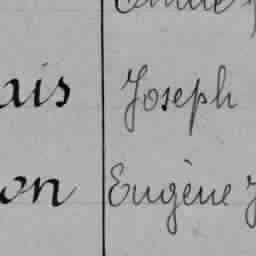 ais Joseph
on Eugène J